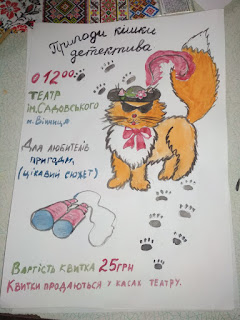 Пригоди кішки
детектива
О 12:00.
Театр
ім. Садовського
м. Вінниця
Для любителів
пригоди,
(цікавий сюжет)
Вартість квитка 25грн
Квитки продаються у касах театру.